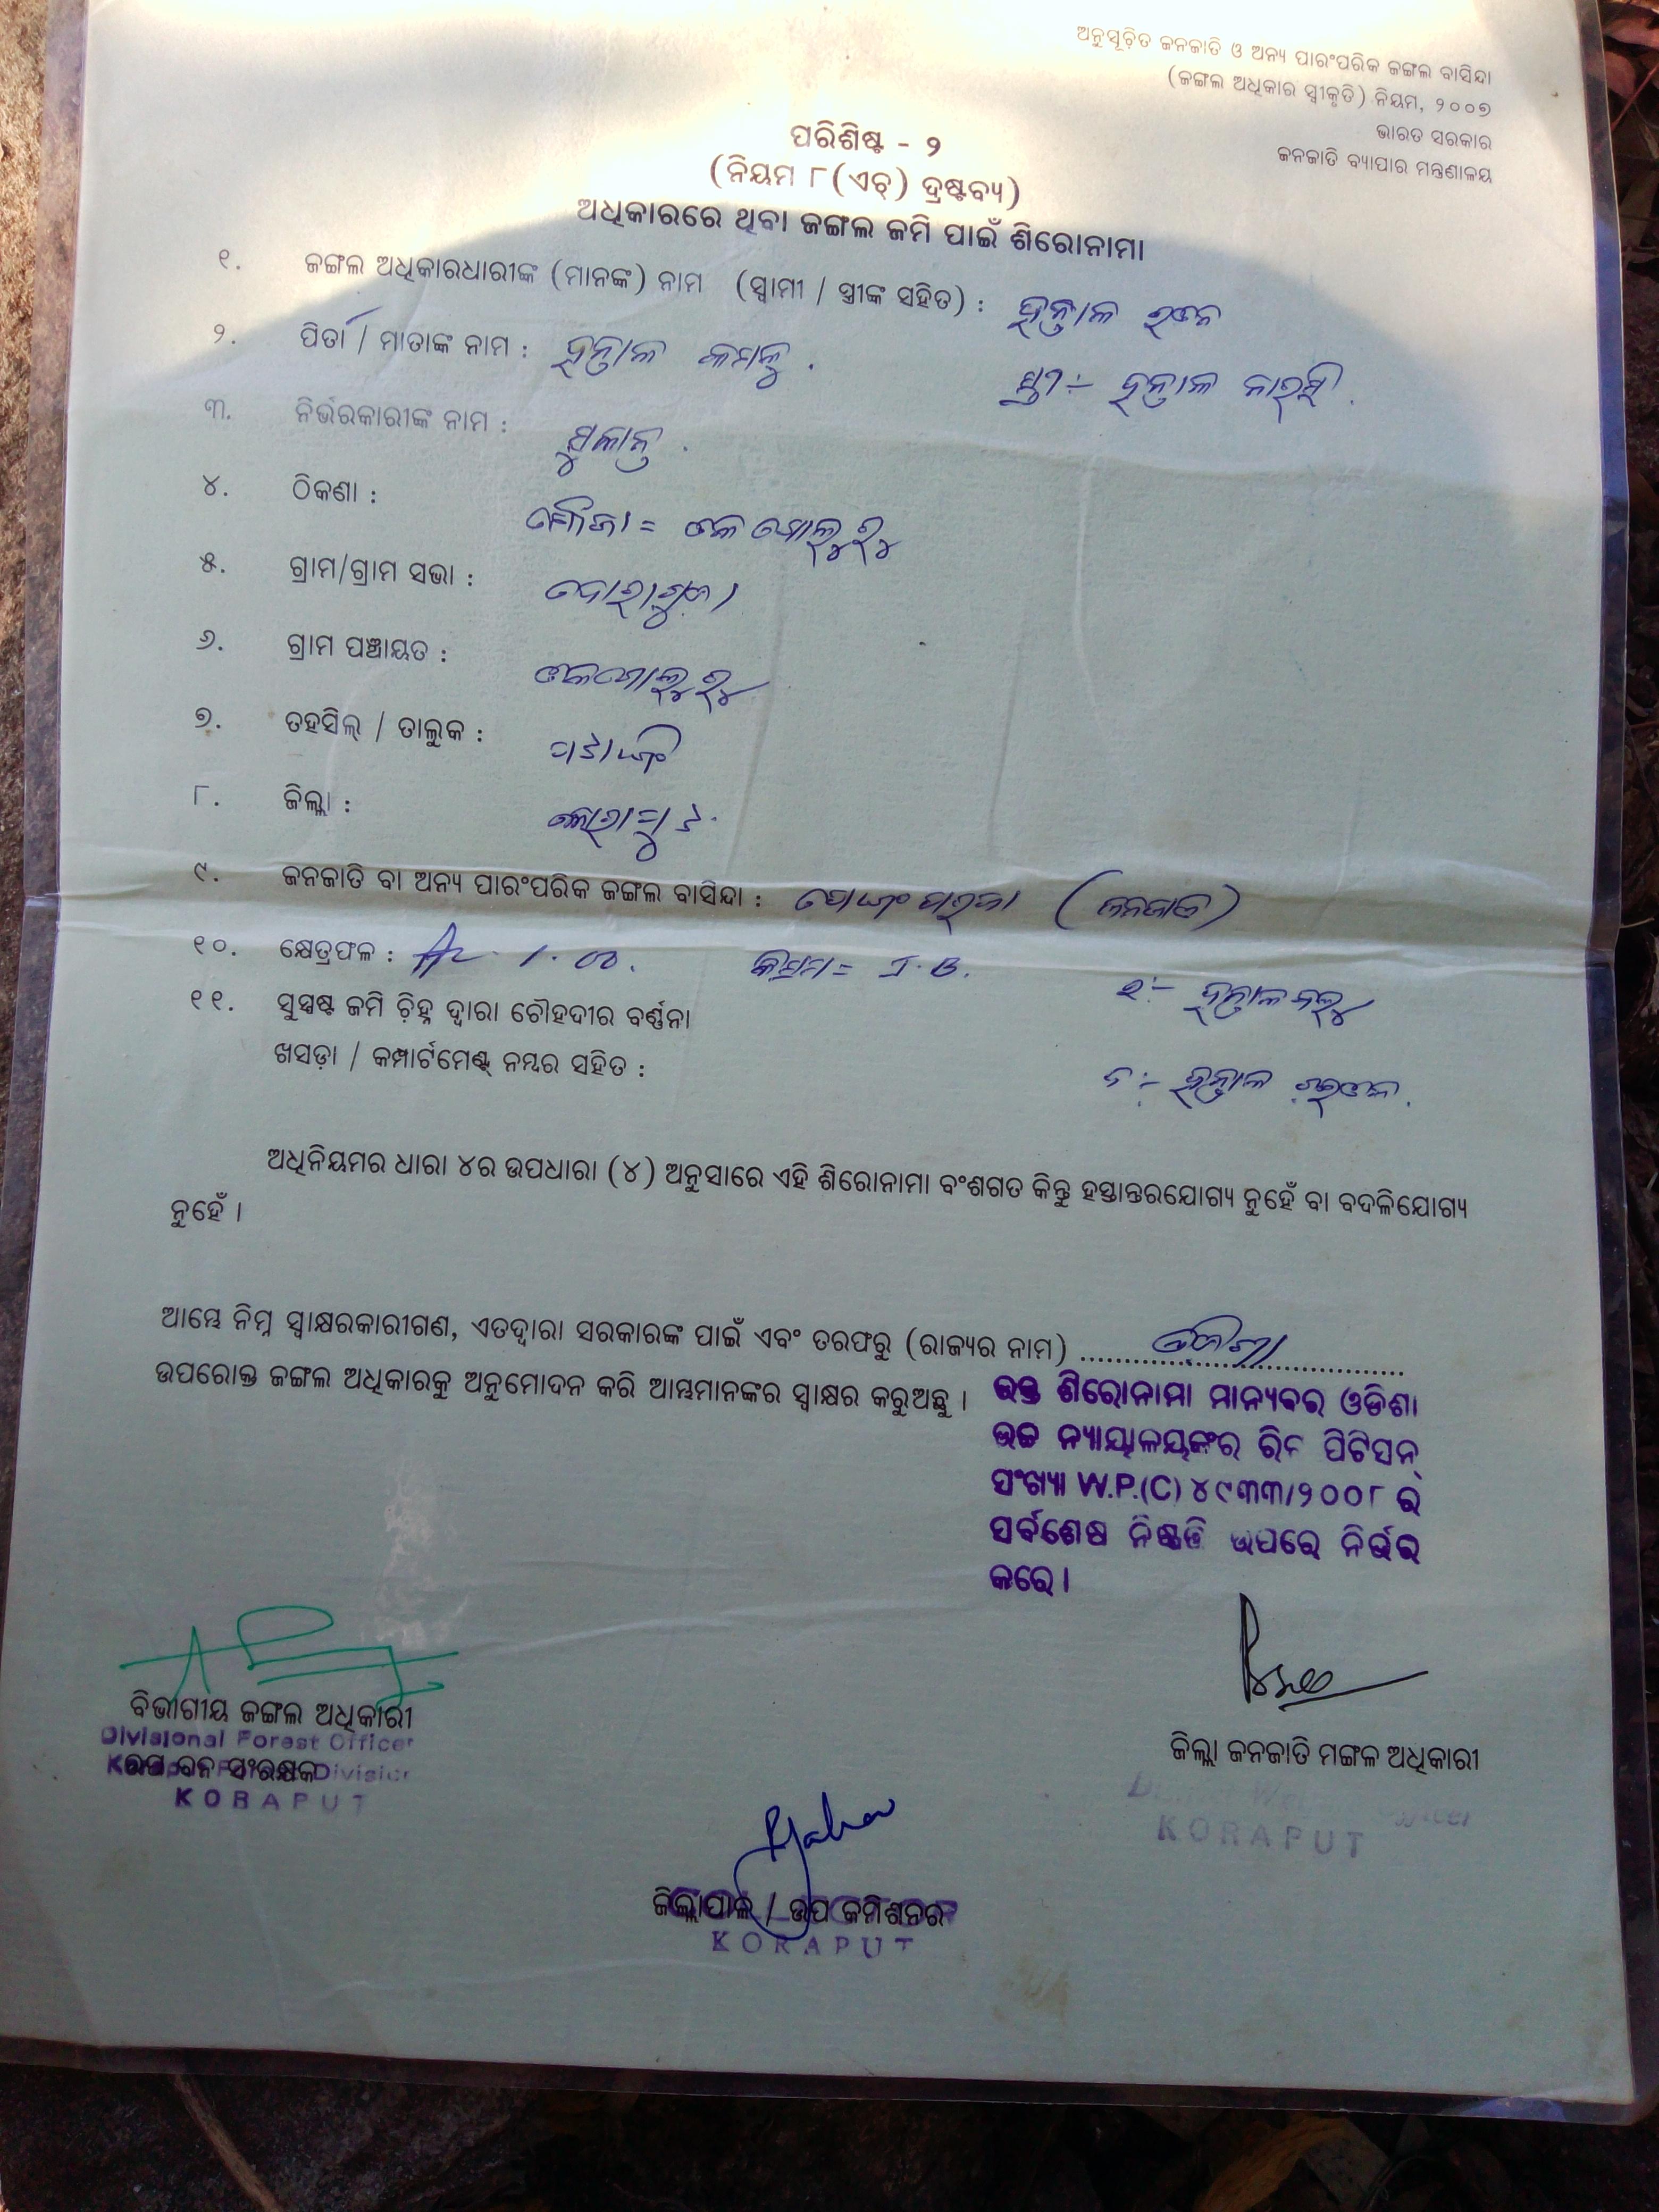 ଅନୁସୂଚିତ ଜନଜାତି ଓ ଅନ୍ୟ ପାରଂପରିକ ଜଙ୍ଗଲ ବାସିନ୍ଦା
(ଜଙ୍ଗଲ ଅଧିକାର ସ୍ୱୀକୃତି) ନିୟମ, ୨୦୦୭
ଭାରତ ସରକାର
ଜନଜାତି ବ୍ୟାପାର ମନ୍ତ୍ରଣାଳୟ
ପରିଶିଷ୍ଟ - ୨
(ନିୟମ ୮(ଏଚ୍) ଦ୍ରଷ୍ଟବ୍ୟ)
ଅଧିକାରରେ ଥିବା ଜଙ୍ଗଲ ଜମି ପାଇଁ ଶିରୋନାମା
୧. ଜଙ୍ଗଲ ଅଧିକାରଧାରୀଙ୍କ (ମାନଙ୍କ) ନାମ (ସ୍ୱାମୀ / ସ୍ତ୍ରୀଙ୍କ ସହିତ) : ହନ୍ତାଳ
୨. ପିତା / ମାତାଙ୍କ ନାମ : ହନ୍ତାଳ
ସ୍ତ୍ରୀ :- ହନ୍ତାଳ
୩. ନିର୍ଭରକାରୀଙ୍କ ନାମ :
୪. ଠିକଣା : ମୌଜା =
୫. ଗ୍ରାମ/ଗ୍ରାମ ସଭା : ଦୋରାଗୁଡା
୬. ଗ୍ରାମ ପଞ୍ଚାୟତ :
୭. ତହସିଲ୍ / ତାଲୁକ : ପଟାଙ୍ଗି
୮. ଜିଲ୍ଲା : କୋରାପୁଟ
୯. ଜନଜାତି ବା ଅନ୍ୟ ପାରଂପରିକ ଜଙ୍ଗଲ ବାସିନ୍ଦା : ପରଜା (ଜନଜାତି)
୧୦. କ୍ଷେତ୍ରଫଳ : Ac 1.00. କିସମ = J.B.
୧୧. ସୁସ୍ପଷ୍ଟ ଜମି ଚିହ୍ନ ଦ୍ୱାରା ଚୌହଦୀର ବର୍ଣ୍ଣନା ଉ:- ହନ୍ତାଳ
ଖସଡ଼ା / କମ୍ପାର୍ଟମେଣ୍ଟ୍ ନମ୍ବର ସହିତ : ଦ:- ହନ୍ତାଳ
ଅଧିନିୟମର ଧାରା ୪ର ଉପଧାରା (୪) ଅନୁସାରେ ଏହି ଶିରୋନାମା ବଂଶଗତ କିନ୍ତୁ ହସ୍ତାନ୍ତରଯୋଗ୍ୟ ନୁହେଁ ବା ବଦଳିଯୋଗ୍ୟ
ନୁହେଁ ।
ଆମ୍ଭେ ନିମ୍ନ ସ୍ୱାକ୍ଷରକାରୀଗଣ, ଏତଦ୍ୱାରା ସରକାରଙ୍କ ପାଇଁ ଏବଂ ତରଫରୁ (ରାଜ୍ୟର ନାମ) ଓଡିଶା
ଉପରୋକ୍ତ ଜଙ୍ଗଲ ଅଧିକାରକୁ ଅନୁମୋଦନ କରି ଆମ୍ଭମାନଙ୍କର ସ୍ୱାକ୍ଷର କରୁଅଛୁ ।
ଉକ୍ତ ଶିରୋନାମା ମାନ୍ୟବର ଓଡିଶା
ଉଚ୍ଚ ନ୍ୟାୟାଳୟଙ୍କର ରିଟ ପିଟିସନ୍
ସଂଖ୍ୟା W.P.(C) ୪୯୩୩/୨୦୦୮ ର
ସର୍ବଶେଷ ନିଷ୍ପତ୍ତି ଉପରେ ନିର୍ଭର
କରେ ।
ବିଭାଗୀୟ ଜଙ୍ଗଲ ଅଧିକାରୀ
Divisional Forest Officer
ଉପ ବନ ସଂରକ୍ଷକ
KORAPUT
ଜିଲ୍ଲା ଜନଜାତି ମଙ୍ଗଳ ଅଧିକାରୀ
KORAPUT
ଜିଲ୍ଲାପାଳ / ଉପ କମିଶନର
KORAPUT